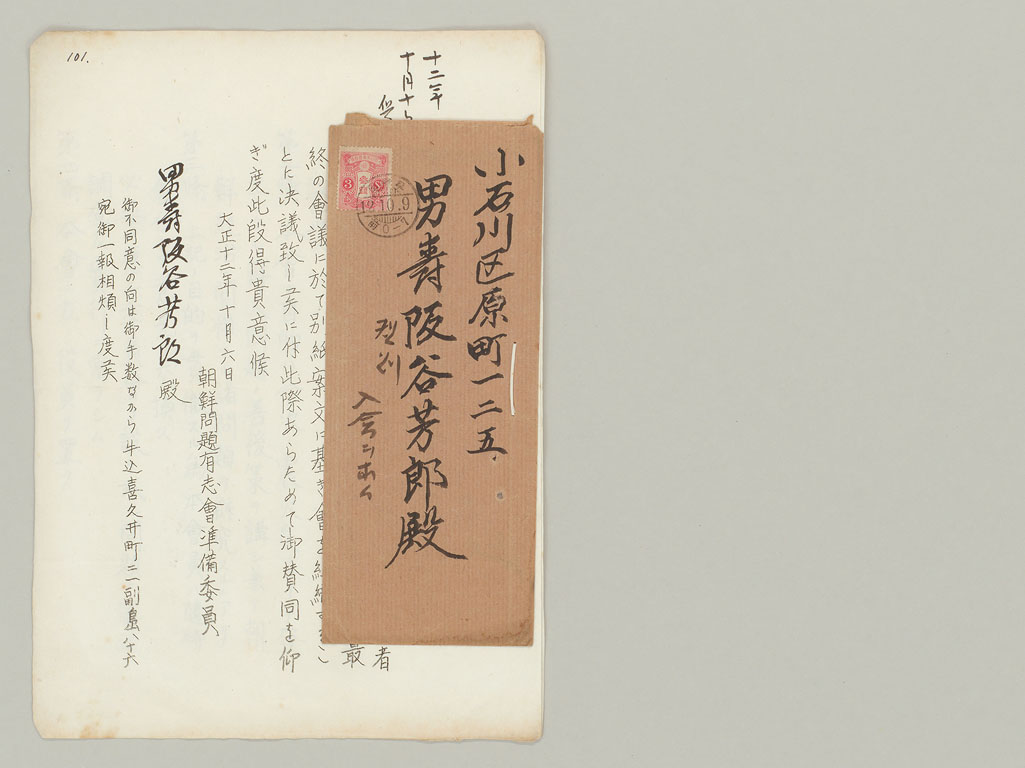 101.
十二年
十月十
者
最
終の會議に於て別紙案文に基き會を組織する こ
とに決議致し候に付此際あらためて御賛同を仰
ぎ度此段得貴意候
大正十二年十月六日
朝鮮問題有志會準備委員
男爵阪谷芳郎殿
御不同意の向は御手数ながら牛込喜久井町三一副島八十六
宛御一報相煩し度候
小石川区原町一二五
男爵阪谷芳郎殿
入会シホム
3
10.9